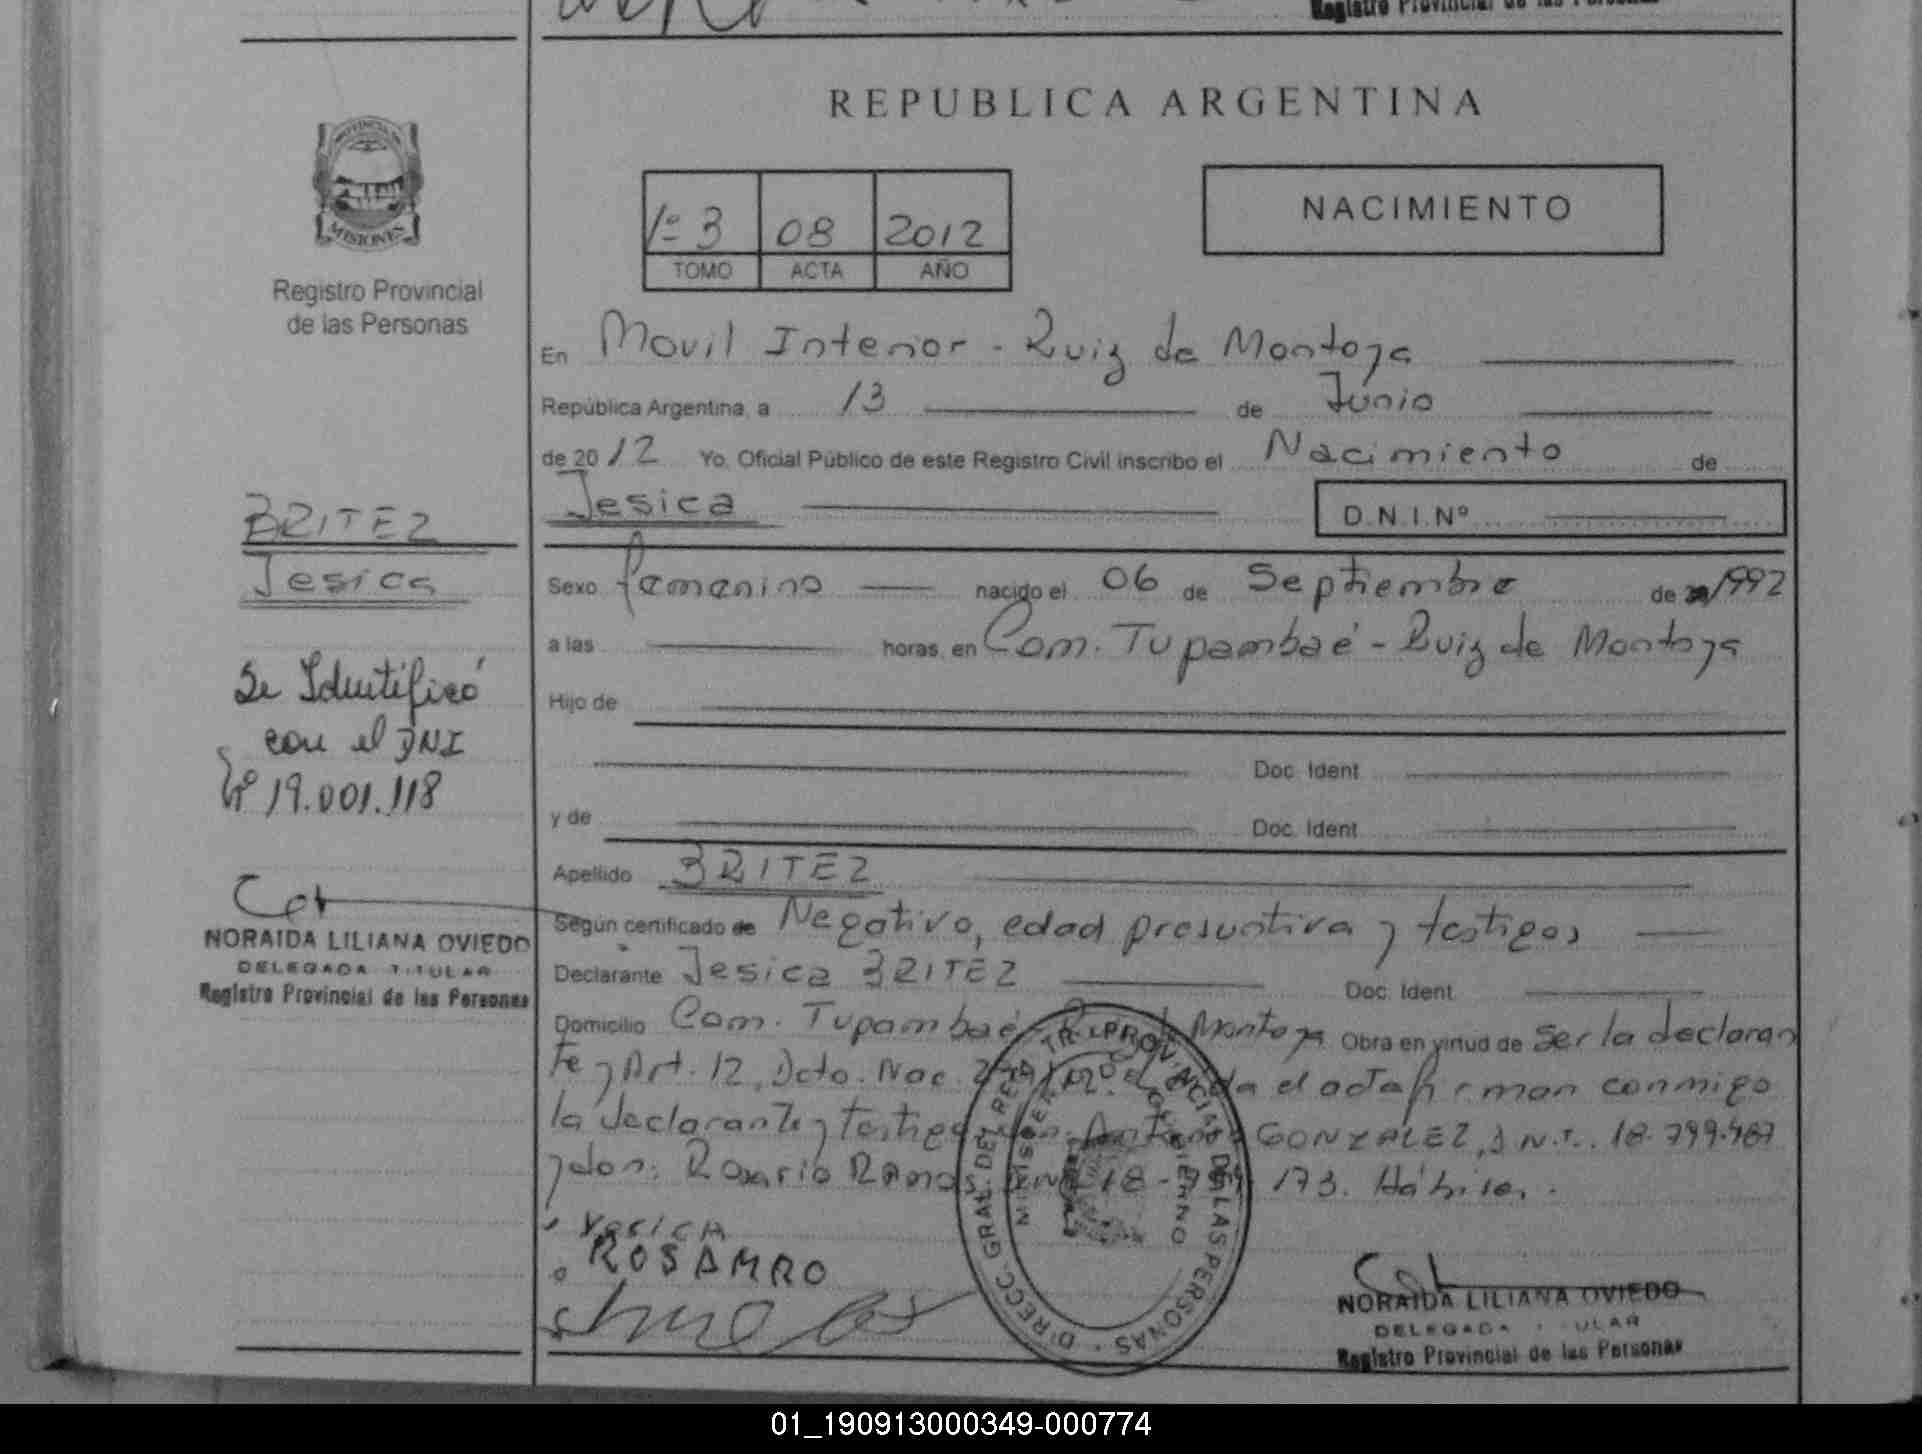 Registro Provincial de las Personas
REPUBLICA ARGENTINA
PROVINCIA DE
MISIONES
Registro Provincial
de las Personas
1º 3 08 2012
TOMO ACTA AÑO
NACIMIENTO
En Movil Interior - Ruiz de Montoya
República Argentina, a 13 de Junio
de 2012 Yo, Oficial Público de este Registro Civil inscribo el Nacimiento de
Jesica D.N.I.Nº
BRITEZ
Jesica
Se Identificó
con el DNI
Nº 19.001.118
NORAIDA LILIANA OVIEDO
DELEGADA TITULAR
Registro Provincial de las Personas
Sexo femenino nacido el 06 de Septiembre de 1992
a las horas, en Com. Tupambaé - Ruiz de Montoya
Hijo de
Doc. Ident
y de Doc. Ident
Apellido BRITEZ
Según certificado de Negativo, edad presuntiva y testigos
Declarante Jesica BRITEZ Doc. Ident
Domicilio Com. Tupambaé Montoya Obra en virtud de Ser la declaran
te y Art. 12, Dcto. Nac. el acta firman conmigo
la declarante y testigos Antonio GONZALEZ, D.N.I. 18.799.467
y don: Rosario Ramos 18 173. Hábiles.
YESICA
ROSAMRO
DIRECC. GRAL. DEL REGISTRO PROVINCIAL DE LAS PERSONAS
MINISTERIO DE GOBIERNO
NORAIDA LILIANA OVIEDO
DELEGADA TITULAR
Registro Provincial de las Personas
01_190913000349-000774